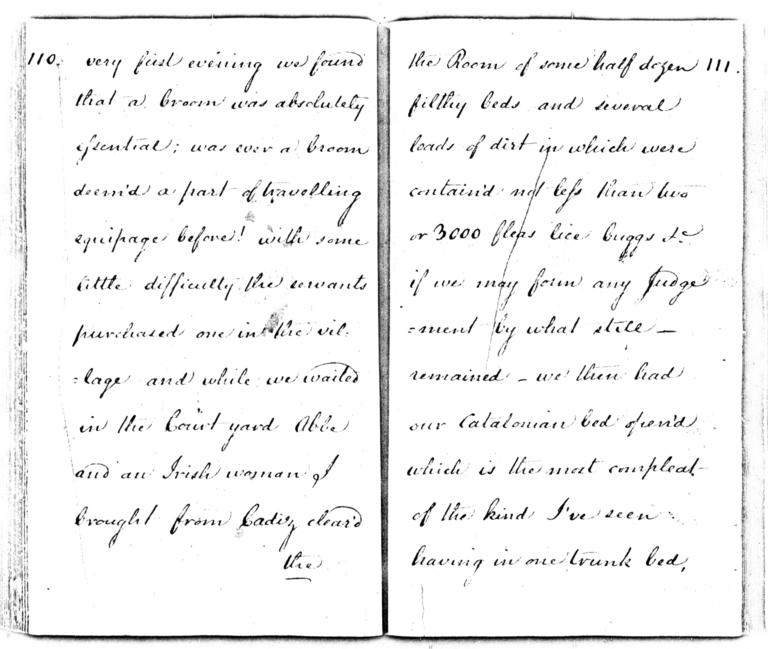 110. very first evening we found
that a broom was absolutely
essential; was ever a broom
deem'd a part of travelling
equipage before! with some
little difficulty the servants
purchased one in the vil-
=lage and while we waited
in the Court yard Abbe
and an Irish woman I
brought from Cadiz clear'd
the
the Room of some half dozen 111.
filthy beds and several
loads of dirt in which were
contain'd not less than two
or 3000 fleas lice buggs &c
if we may form any Judge
=ment by what still –
remained – we then had
our Catalonian bed open'd
which is the most compleat
of the kind I've seen
having in one trunk bed,